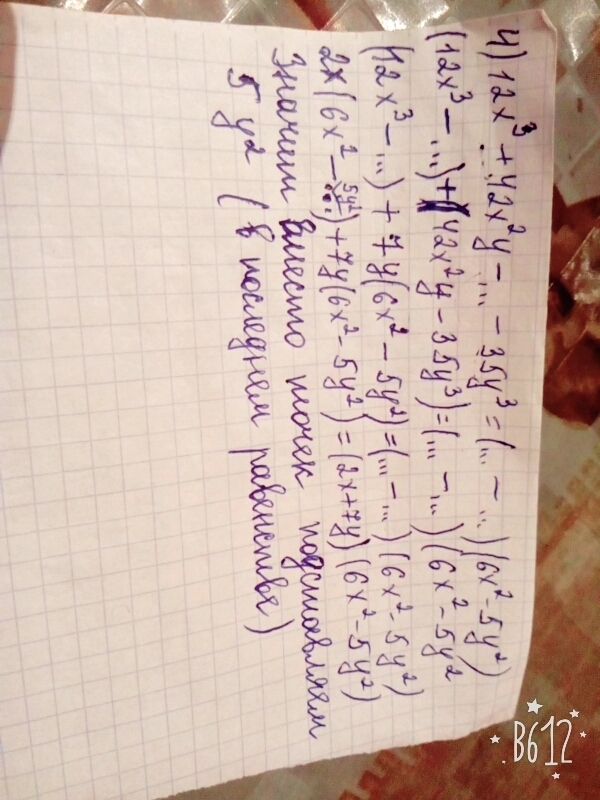 4) 12x³ + 42x²y - ... - 35y³ = (... - ...)(6x² - 5y²)
(12x³ - ...) + (42x²y - 35y³) = (... - ...)(6x² - 5y²
(12x³ - ...) + 7y(6x² - 5y²) = (... - ...)(6x² - 5y²)
5y²
2x(6x² - ...) + 7y(6x² - 5y²) = (2x + 7y)(6x² - 5y²)
Значит вместо точек подставляем
5y² (в последнем равенстве)
B612